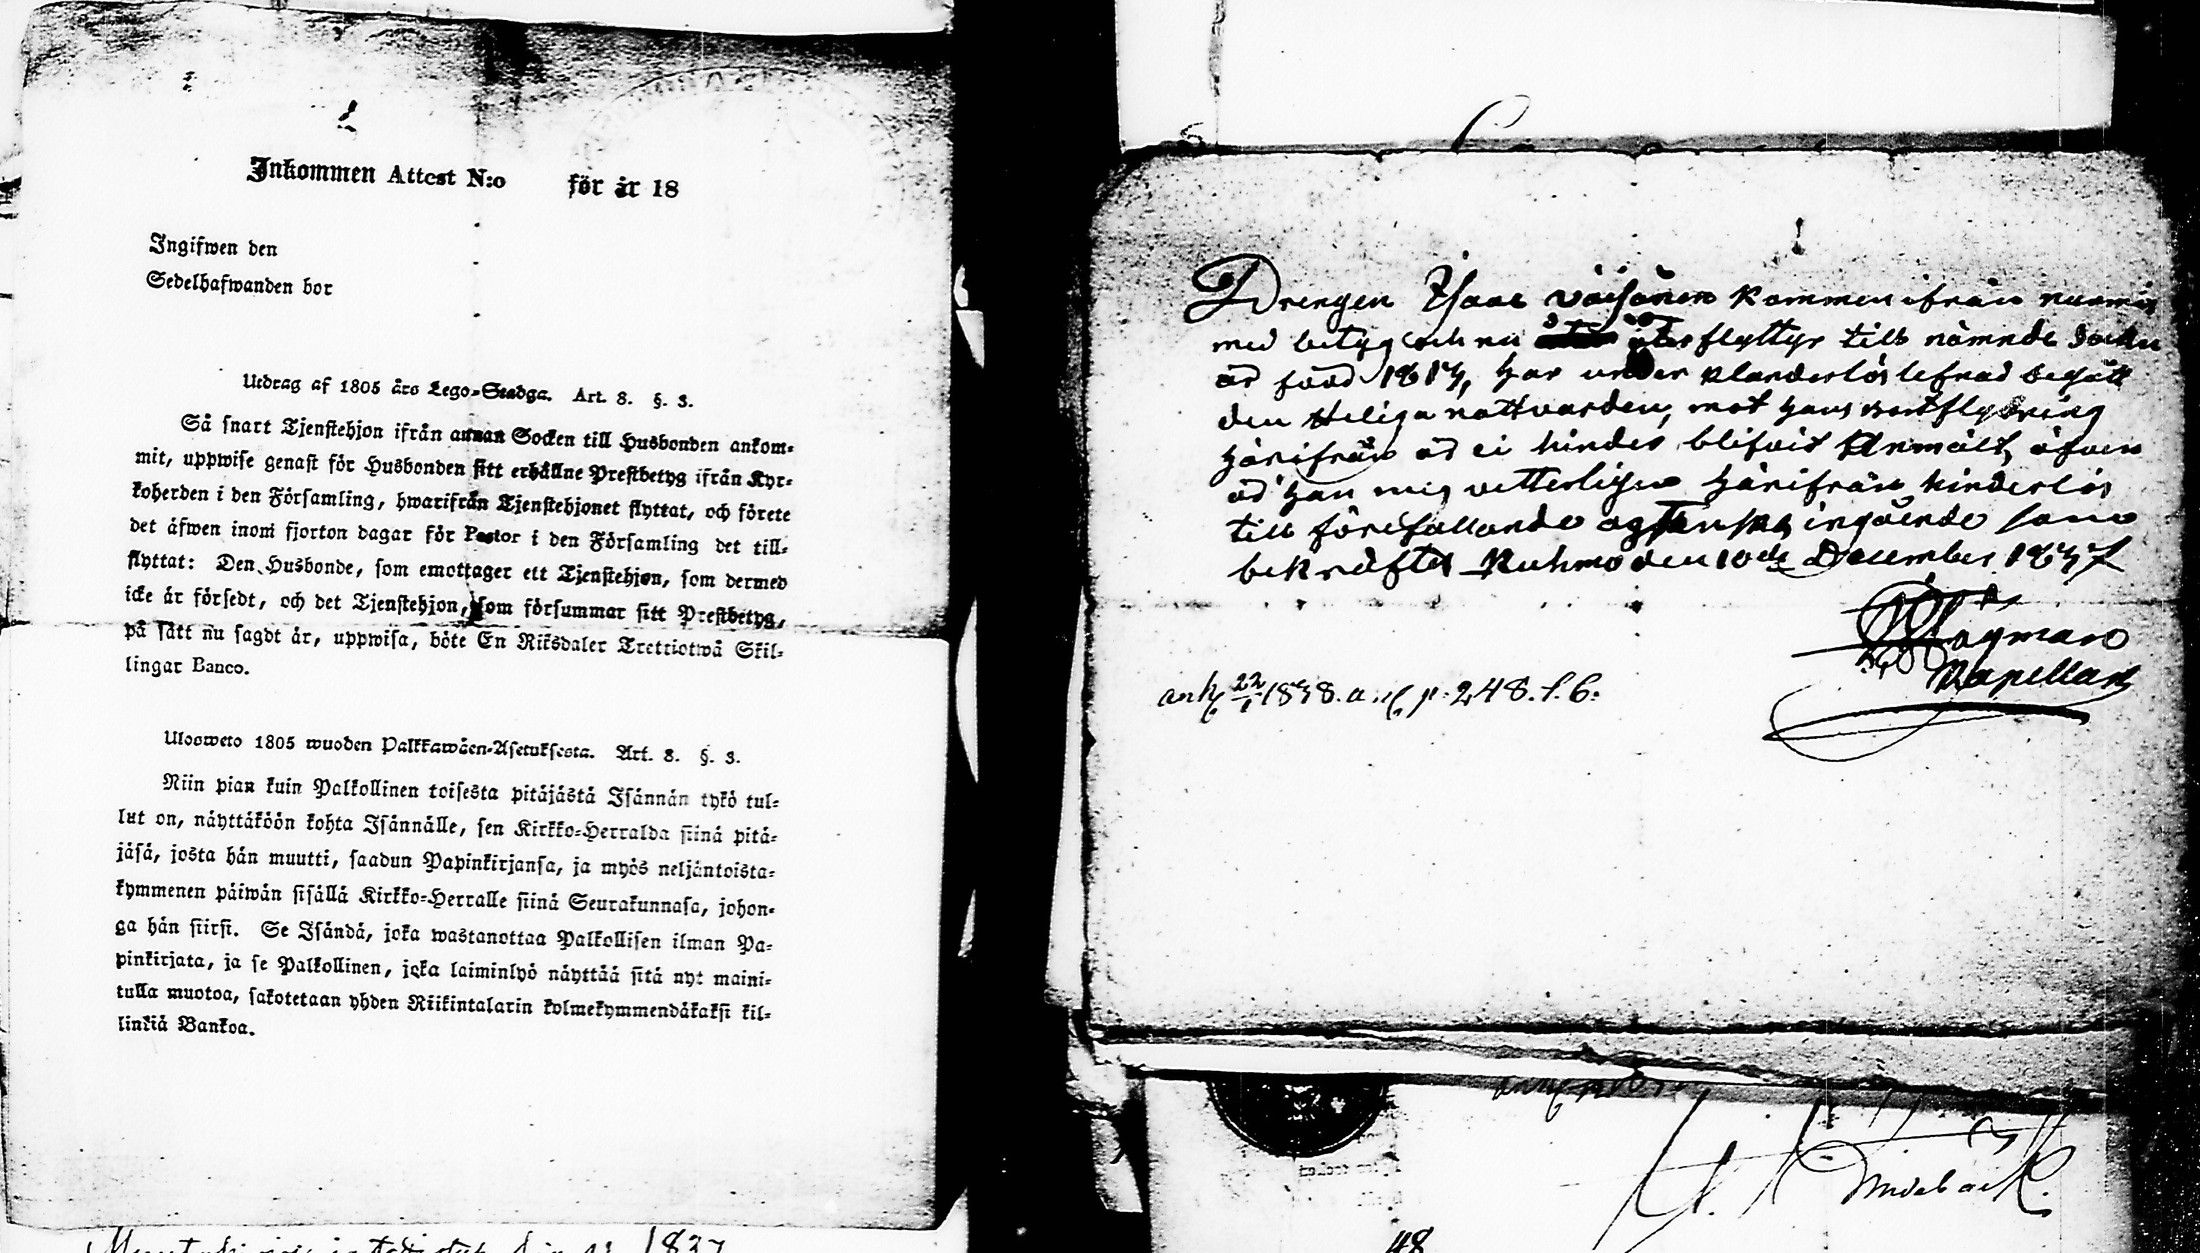 Inkommen Attest N:o för år 18
Ingifwen den
Sedelhafwanden bor
Utdrag af 1805 års Lego-Stadga. Art. 8. §. 3.
Så snart Tjenstehjon ifrån annan Socken till Husbonden ankom-
mit, uppwise genast för Husbonden sitt erhållne Prestbetyg ifrån Kyr-
koherden i den Församling, hwarifrån Tjenstehjonet flyttat, och förete
det äfwen inom fjorton dagar för Pastor i den Församling det till-
flyttat: Den Husbonde, som emottager ett Tjenstehjon, som dermed
icke är försedt, och det Tjenstehjon, som försummar sitt Prestbetyg,
på sätt nu sagdt är, uppwisa, böte En Riksdaler Trettiotwå Skil-
lingar Banco.
Uloosweto 1805 wuoden Palkkawäen-Asetuksesta. Art. 8. §. 3.
Niin pian kuin Palkollinen toisesta pitäjästä Isännän tykö tul-
lut on, näyttäköön kohta Isännälle, sen Kirkko-Herralda siinä pitä-
jäsä, josta hän muutti, saadun Papinkirjansa, ja myös neljäntoista-
kymmenen päiwän sisällä Kirkko-Herralle siinä Seurakunnasa, johon-
ga hän siirsi. Se Isändä, joka wastanottaa Palkollisen ilman Pa-
pinkirjata, ja se Palkollinen, joka laiminlyö näyttää sitä nyt maini-
tulla muotoa, sakotetaan yhden Riikintalarin kolmekymmendäkaksi kil-
linkiä Bankoa.
1837
Drengen Isaac Väisänen kommen ifrån nurmis
med betyg och nu åter flyttar till nämnde Socken
är född 1817, har under klanderlös lefnad begått
den Heliga nattvarden, mot hans bortflyttning
härifrån är ei hinder blifvit Anmält, äfven
är han mig vetterligen härifrån hinderlös
till förefallande ägtenskap ingående som
bekräftas Kuhmo den 10de December 1837
Hagman
Kapellan
ank. 22/1 1838. a p. 248. f. 6.
48